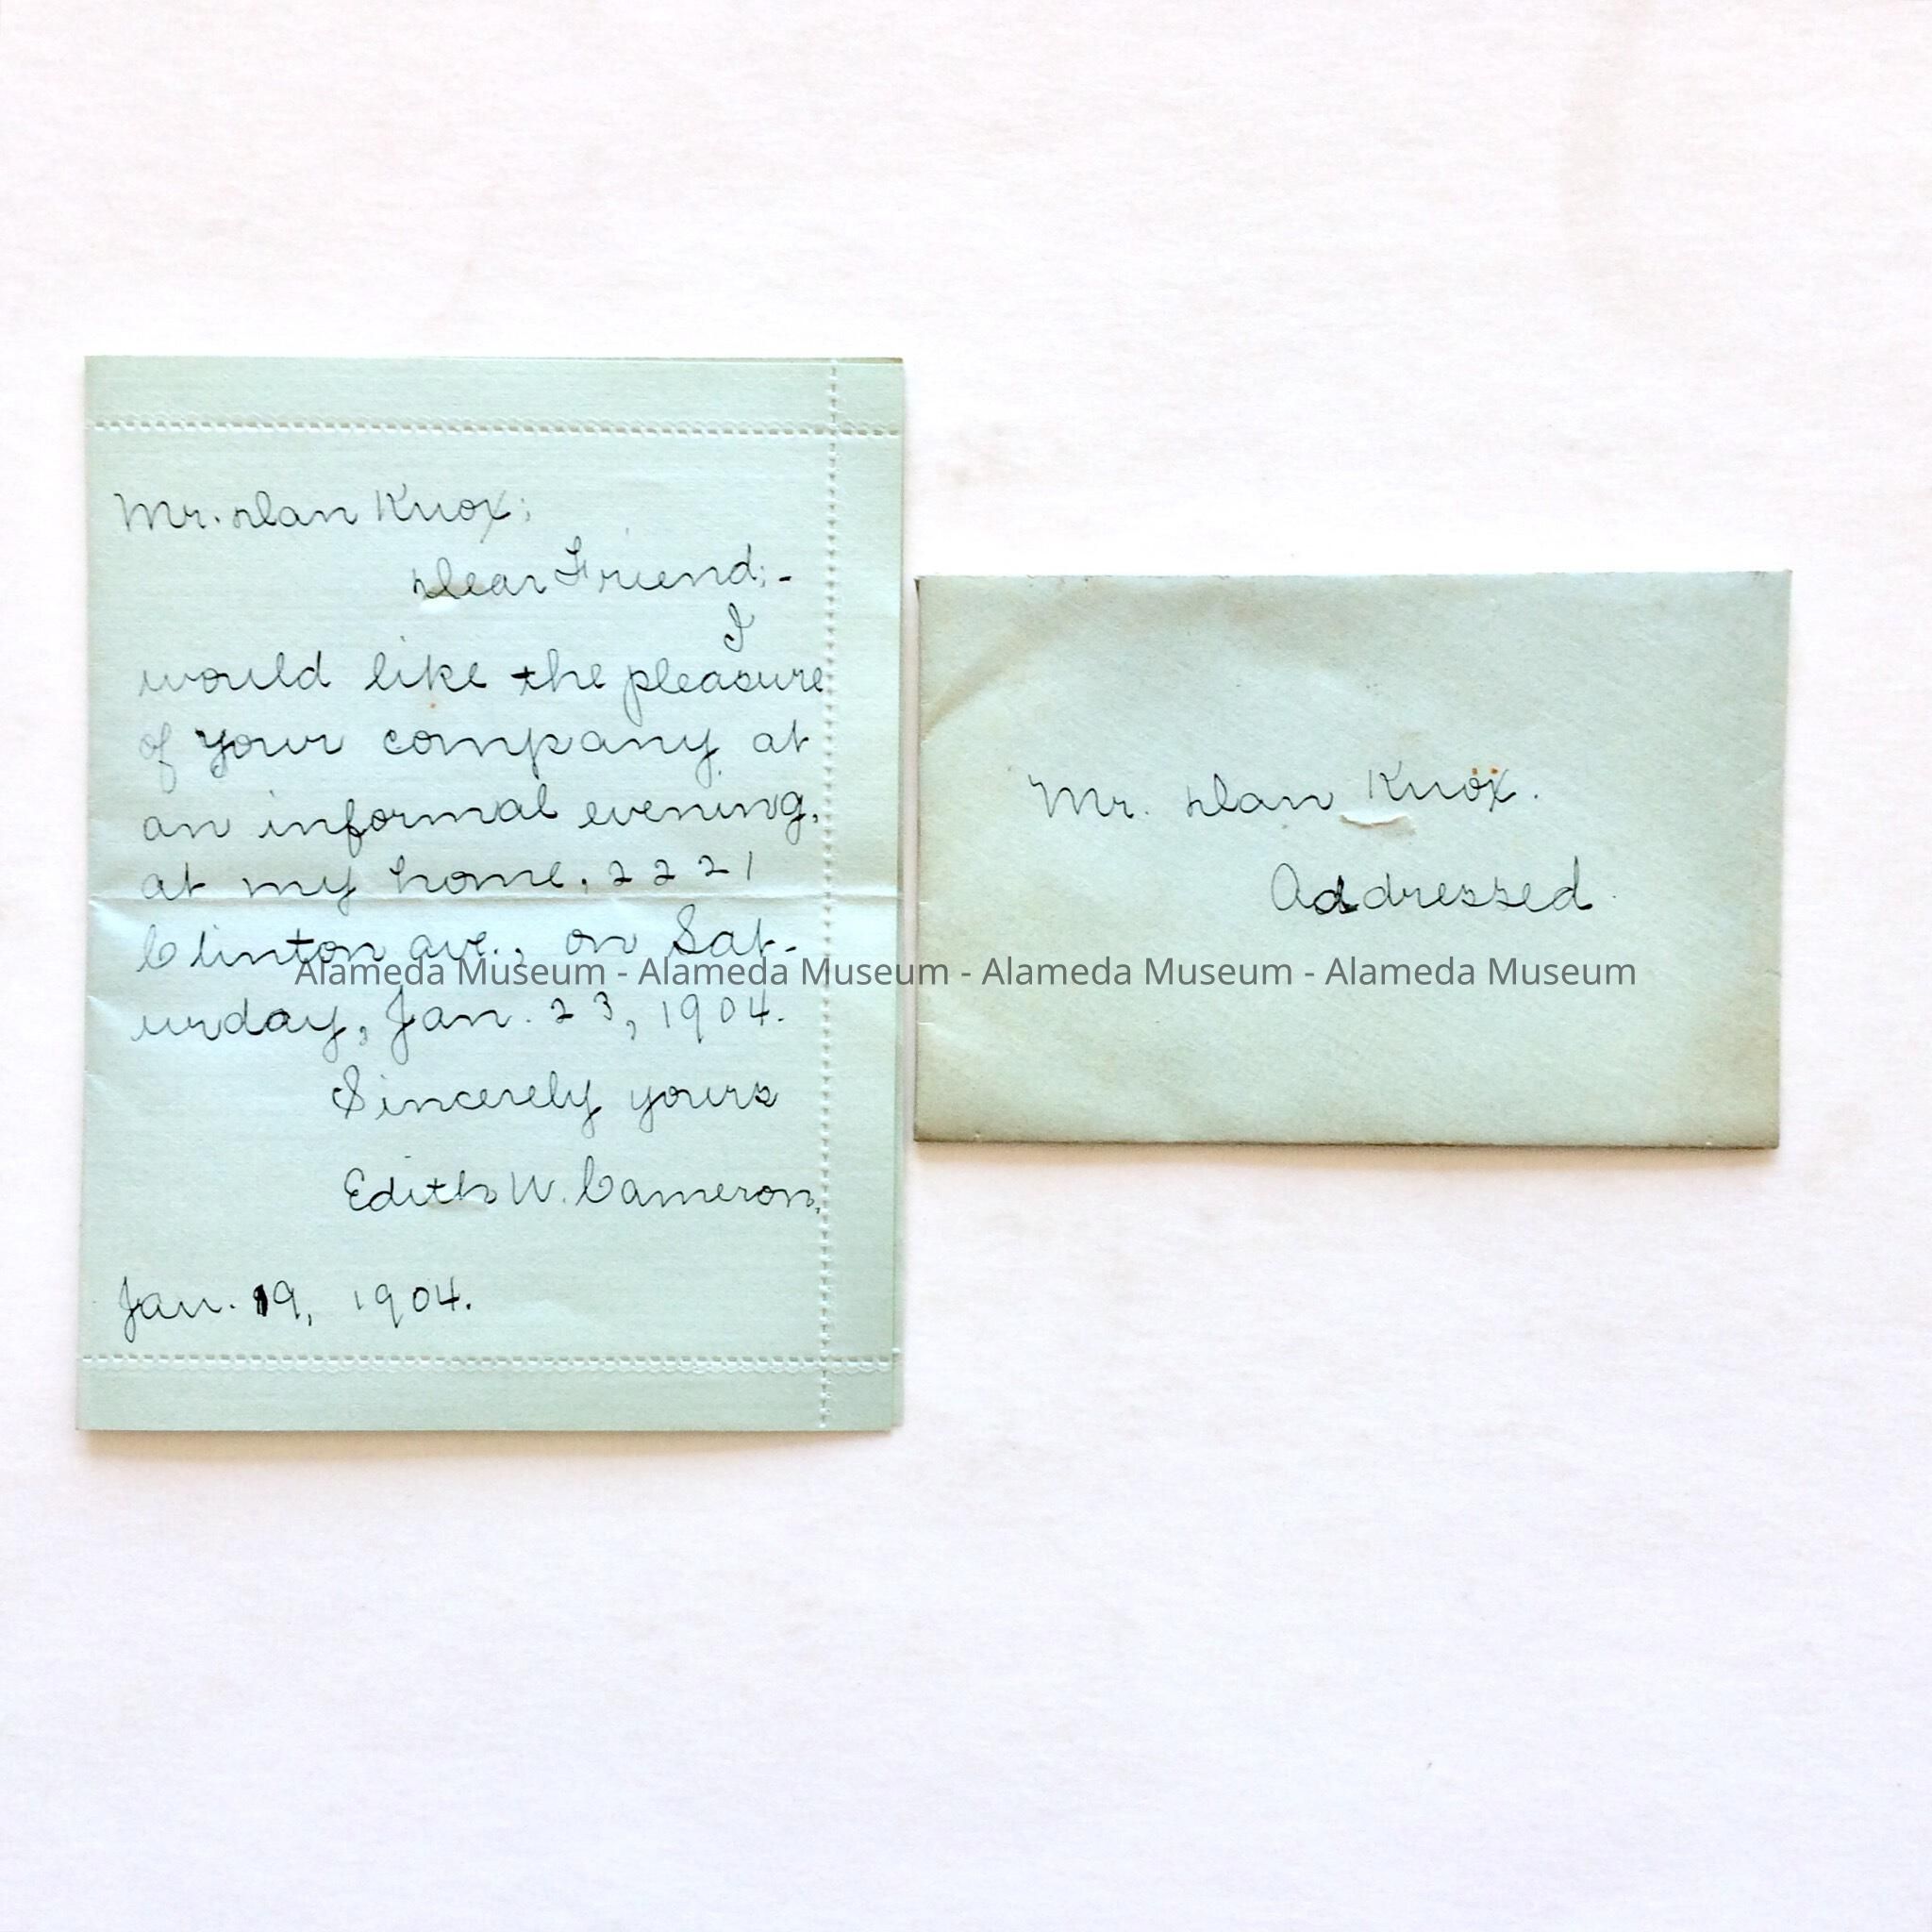 Mr. Dan Knox;
Dear Friend;-
I
would like the pleasure
of your company at
an informal evening,
at my home, 2221
Clinton ave., on Sat-
urday, Jan. 23, 1904.
Sincerely yours
Edith W. Cameron,
Jan. 19, 1904.
Mr. Dan Knox.
Addressed.
Alameda Museum - Alameda Museum - Alameda Museum - Alameda Museum